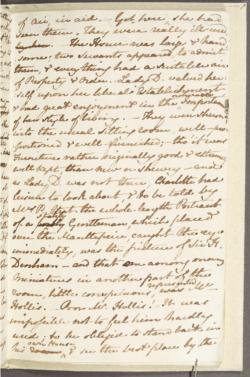 of air, in aid. — Got here, she had
seen them; They were really ill-used
The House was large & hand-
some; two Servants appeared, to admit
them, & every thing had a suitable air
of Property & Order. — Lady D. valued her-
self upon her liberal Establishment
& had great enjoyment in the Importance
of her Style of living. — They were shewn
into the usual sitting room, well-pro-
portioned & well-furnished; — tho' it was
Furniture rather originally good & extremely
well kept, than new or shewey — and
as Lady D. was not there, Charlotte had
leisure to look about, & to be told by
Mrs P. that the whole-length Portrait
of a stately Gentleman, which placed
over the Mantlepeice, caught the eye
immediately, was the picture of Sir H.
Denham — and that one among many
Miniatures in another part of the
room, little conspicuous, represented Mr
Hollis. — Poor Mr Hollis! — It was
impossible not to feel him hardly
used; to be obliged to stand back in
his own House & see the best place by the